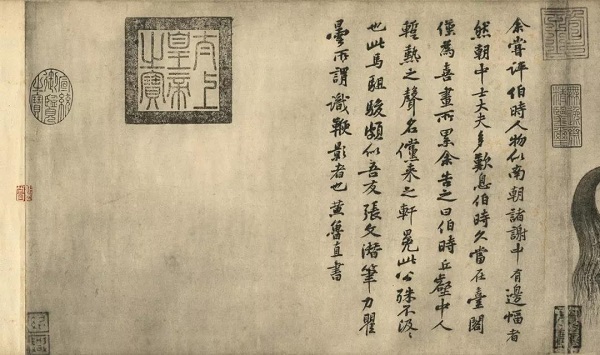 余嘗評伯時人物似南朝諸謝中有邊幅者
然朝中士大夫多歎息伯時久當在臺閣
僅為喜畫所累余告之曰伯時丘壑中人
暫熱之聲名儻來之軒冕此公殊不汲〻
也此馬駔駿頗似吾友張文潛筆力瞿
曇所謂識鞭影者也黃魯直書
太上皇帝之寶
宣統御覽之寶